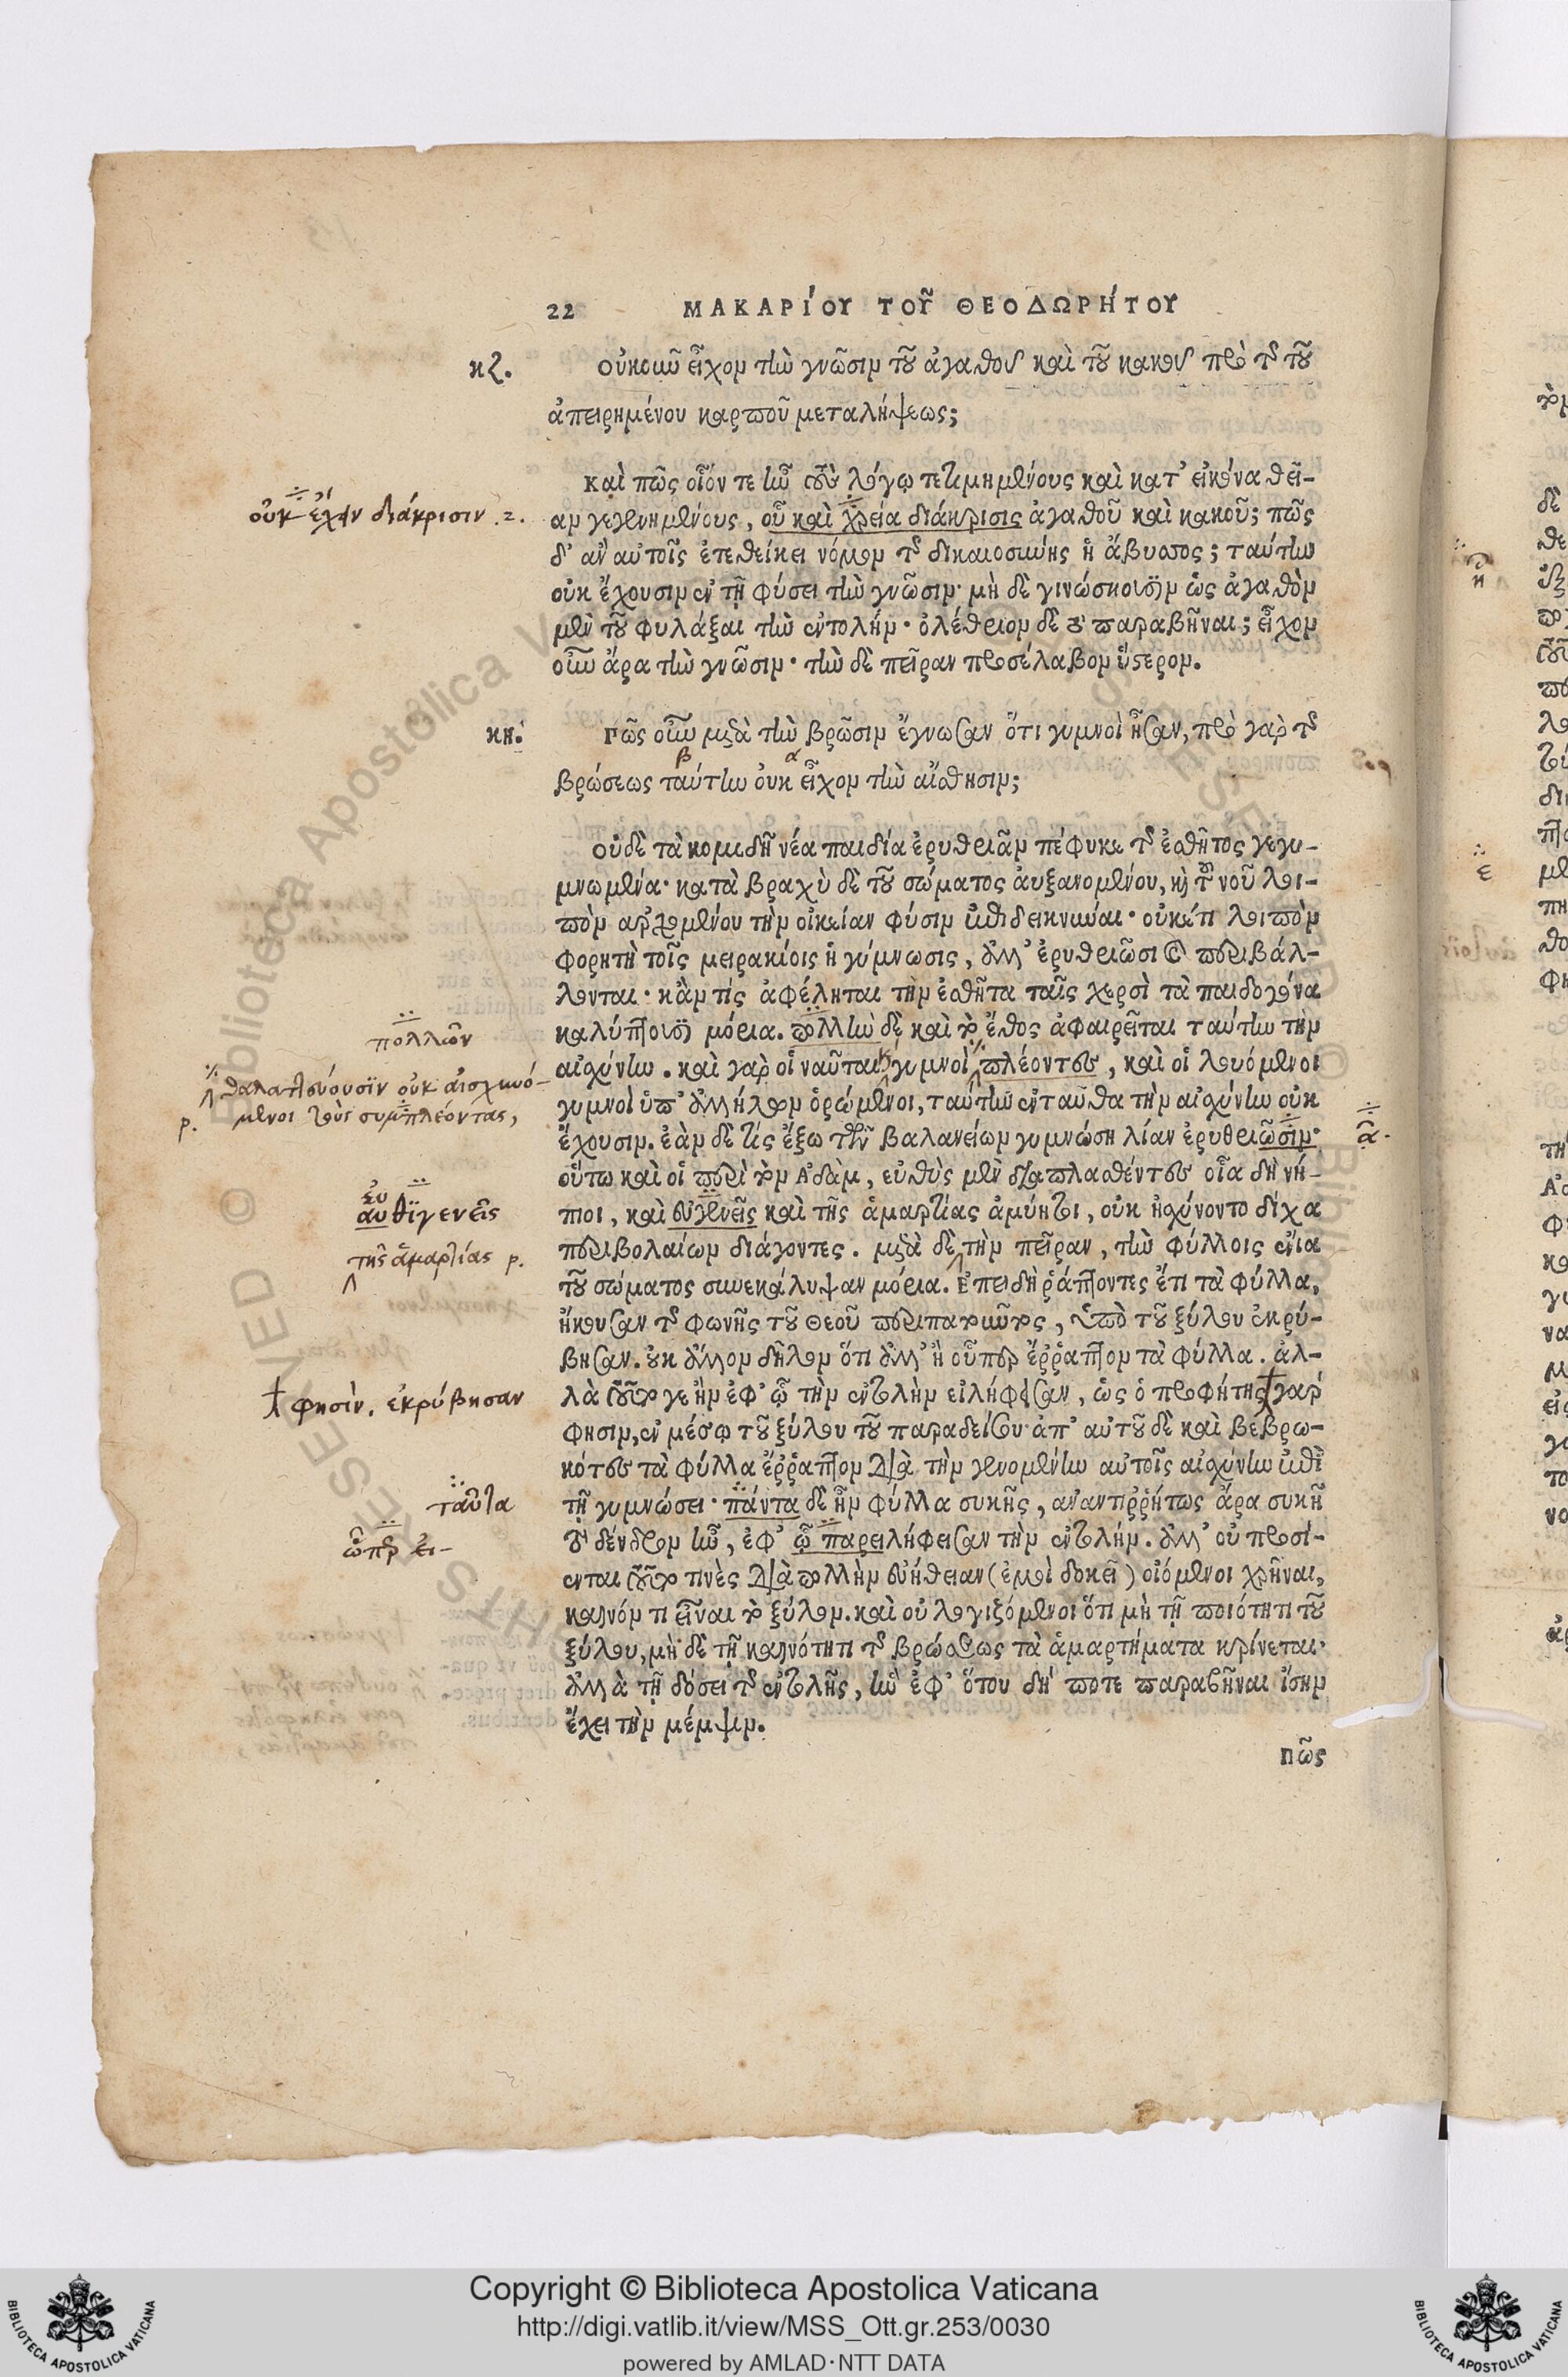 22 ΜΑΚΑΡΊΟΥ ΤΟΥ͂ ΘΕΟΔΩΡΉΤΟΥ
κζ. Οὐκοιῶ εἶχον τὴν γνῶσιν τοῦ ἀγαθοῦ καὶ τοῦ κακοῦ πρὸ τῆς τοῦ
ἀπειρημένου καρποῦ μεταλήψεως;
Καὶ πῶς οἷόν τε ἦν τοὺς λόγῳ τετιμημένους καὶ κατ' εἰκόνα θεί-
αν γεγενημένους, οὗ καὶ χρεία διάκρισις ἀγαθοῦ καὶ κακοῦ; πῶς
δ' ἂν αὐτοῖς ἐτεθείκει νόμον τῆς δικαιοσύνης ἡ ἄβυσσος; ταύτην
οὐκ ἔχουσιν ἐν τῇ φύσει τὴν γνῶσιν· μὴ δὲ γινώσκουσιν ὡς ἀγαθὸν
μὲν τοῦ φυλάξαι τὴν ἐντολήν· ὀλέθριον δὲ τὸ παραβῆναι; εἶχον
οὖν ἄρα τὴν γνῶσιν· τὴν δὲ πεῖραν προσέλαβον ὕστερον.
κη. Πῶς οὖν μετὰ τὴν βρῶσιν ἔγνωσαν ὅτι γυμνοὶ ἦσαν, πρὸ γὰρ τῆς
βρώσεως ταύτην οὐκ εἶχον τὴν αἴσθησιν;
Οὐδὲ τὰ κομιδῆ νέα παιδία ἐρυθριᾶν πέφυκε τῆς ἐσθῆτος γεγυ-
μνωμένα· κατὰ βραχὺ δὲ τοῦ σώματος αὐξανομένου, καὶ τοῦ νοῦ λοι-
πὸν ἀρχομένου τὴν οἰκείαν φύσιν ἐπιδεικνύναι· οὐκέτι λοιπὸν
φορητὴ τοῖς μειρακίοις ἡ γύμνωσις, ἀλλ' ἐρυθριῶσι καὶ περιβάλ-
λονται· κἄν τίς ἀφέληται τὴν ἐσθῆτα ταῖς χερσὶ τὰ παιδογόνα
καλύπτουσι μόρια. πολλὴν δὲ καὶ τὸ ἔθος ἀφαιρεῖται ταύτην τὴν
αἰσχύνην. καὶ γὰρ οἱ ναῦται γυμνοὶ πλέοντες, καὶ οἱ λουόμενοι
γυμνοὶ ὑπ' ἀλλήλων ὁρώμενοι, ταύτην ἐνταῦθα τὴν αἰσχύνην οὐκ
ἔχουσιν. ἐὰν δὲ τίς ἔξω τῶν βαλανείων γυμνώσῃ λίαν ἐρυθριῶσιν·
οὕτω καὶ οἱ περὶ τὸν Ἀδὰμ, εὐθὺς μὲν διαπλασθέντες οἷα δὴ νή-
πιοι, καὶ εὐγενεῖς καὶ τῆς ἁμαρτίας ἀμύητοι, οὐκ ἠσχύνοντο δίχα
περιβολαίων διάγοντες. μετὰ δὲ τὴν πεῖραν, τὴν φύλλοις ἔνια
τοῦ σώματος συνεκάλυψαν μόρια. Ἐπειδὴ ῥάπτοντες ἔτι τὰ φύλλα,
ἤκουσαν τῆς φωνῆς τοῦ Θεοῦ περιπατοῦντος, ὑπὸ τοῦ ξύλου ἐκρύ-
βησαν. οὐκ ἄλλον δῆλον ὅτι ἀλλ' ἢ οὗπερ ἔῤῥαπτον τὰ φύλλα. ἀλ-
λὰ τοῦτό γε ἦν ἐφ' ᾧ τὴν ἐντολὴν εἰλήφεσαν, ὡς ὁ προφήτης γάρ
φησιν, ἐν μέσῳ τοῦ ξύλου τοῦ παραδείσου· ἀπ' αὐτοῦ δὲ καὶ βεβρω-
κότες τὰ φύλλα ἔῤῥαπτον διὰ τὴν γενομένην αὐτοῖς αἰσχύνην ἐπὶ
τῇ γυμνώσει· πάντα δὲ ἦν φύλλα συκῆς, ἀναντιῤῥήτως ἄρα συκῆ
τὸ δένδρον ἦν, ἐφ' ᾧ παρειλήφεισαν τὴν ἐντολήν. ἀλλ' οὐ προσί-
ενται τοῦτό τινὲς διὰ πολλὴν εὐήθειαν (ἐμοὶ δοκεῖ) οἰόμενοι χρῆναι,
καινόν τι εἶναι τὸ ξύλον. καὶ οὐ λογιζόμενοι ὅτι μὴ τῇ ποιότητι τοῦ
ξύλου, μὴ δὲ τῇ καινότητι τῆς βρώσεως τὰ ἁμαρτήματα κρίνεται·
ἀλλὰ τῇ δόσει τῆς ἐντολῆς, ἣν ἐφ' ὅτου δή ποτε παραβῆναι ἴσην
ἔχει τὴν μέμψιν.
Πῶς
οὐκ ἔχειν διάκρισιν
πολλῶν
θαλαττεύουσιν οὐκ αἰσχυνό-
μενοι τοὺς συμπλέοντας,
p.
εὐ
αὐθιγενεῖς
τῆς ἁμαρτίας p.
φησὶν. ἐκρύβησαν
ταῦτα
ᾧπερ εἰ-
Copyright © Biblioteca Apostolica Vaticana
http://digi.vatlib.it/view/MSS_Ott.gr.253/0030
powered by AMLAD·NTT DATA
BIBLIOTECA APOSTOLICA VATICANA
BIBLIOTECA APOSTOLICA VATICANA